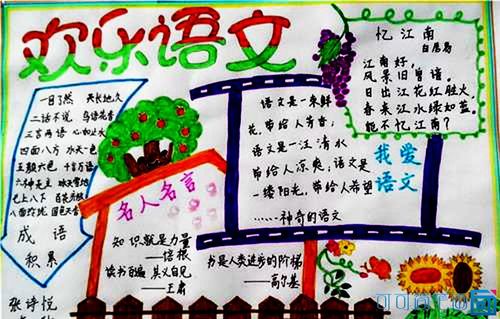 欢乐语文
忆江南
白居易
江南好,
风景旧曾谙。
日出江花红胜火,
春来江水绿如蓝。
能不忆江南?
一目了然 天长地久
二话不说 鸟语花香
三言两语 心如止水
四面八方 水天一色
五颜六色 千言万语
冰天雪地
七上八下 百花齐放
八面玲珑 国色天香
成语
积累
名人名言
知识就是力量
——培根
读书百遍 其义自见
——王肃
语文是一束鲜
花,带给人芳香;
语文是一江清水
带给人凉爽;语文是
一缕阳光,带给人希望
……神奇的语文
我爱
语文
书是人类进步的阶梯
——高尔基
张诗悦